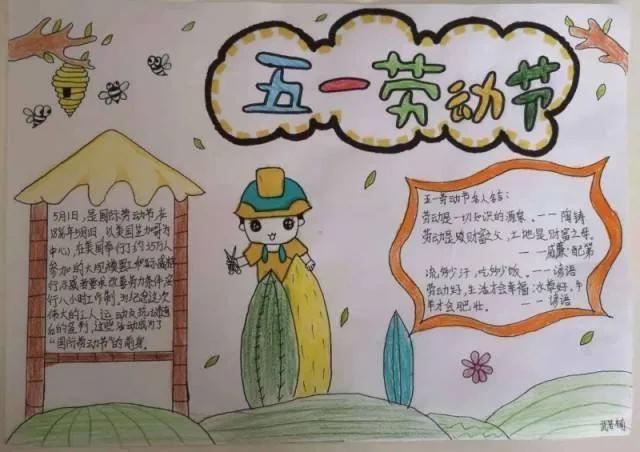 五一劳动节
5月1日,是国际劳动节,在
1886年5月1日,以美国芝加哥为
中心,在美国举行了约35万人
参加的大规模罢工和示威游
行,示威者要求改善劳动条件,实
行八小时工作制,为纪念这次
伟大的工人运动
后的宣判,这些活动成为了
"国际劳动节"的前身。
五一劳动节名人名言:
劳动是一切知识的源泉。---陶铸
劳动是财富之父,土地是财富之母。
--威廉·配第
流多少汗,吃多少饭。---谚语
劳动好,生活才会幸福;水草好,牛
羊才会肥壮。---谚语